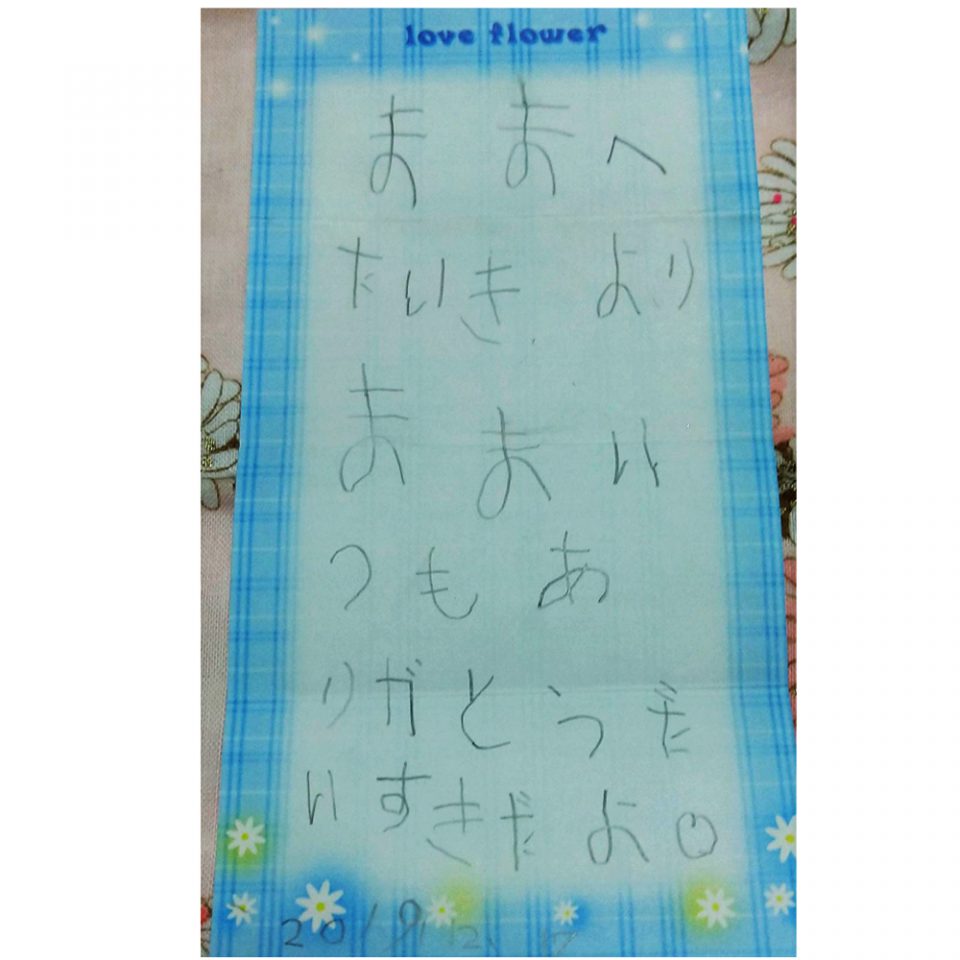 love flower
ままへ
たいき より
ままい
つもあ
りがとうだ
いすきだよ。
2019 12